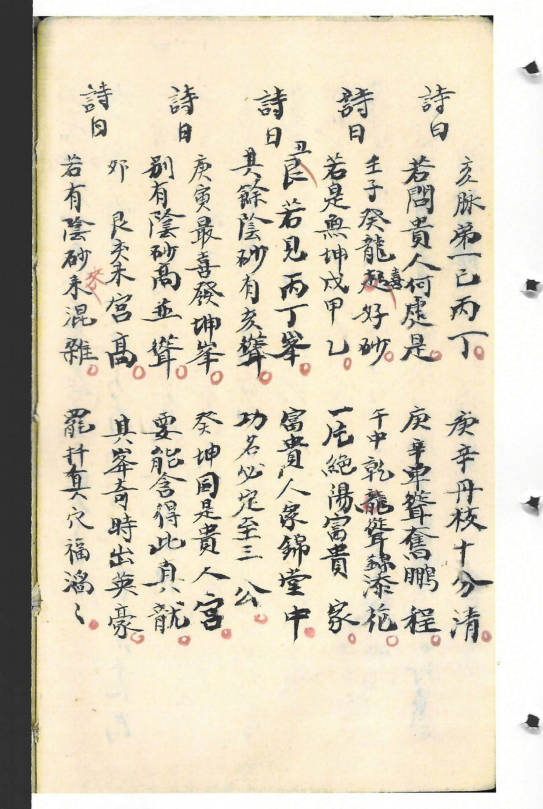 詩曰
亥脈第一己丙丁。庚辛丹枝十分清。
若問貴人何處是。庚辛車聳奮鵬程。
詩曰
壬子癸龍喜好砂。午中乾龍聳錦添花。
若是無坤戌甲乙。一片絕陽富貴家。
詩曰
丑艮若見丙丁峯。富貴人家錦堂中。
其餘陰砂有亥聳。功名必定至三公。
詩曰
庚寅最喜發坤峯。癸坤同是貴人宮。
別有陰砂高並聳。要能舍得此真龍。
詩曰
卯艮亥未宮高。其峯奇時出英豪。
若有陰砂來混雜。罷扦真穴福滔〻。